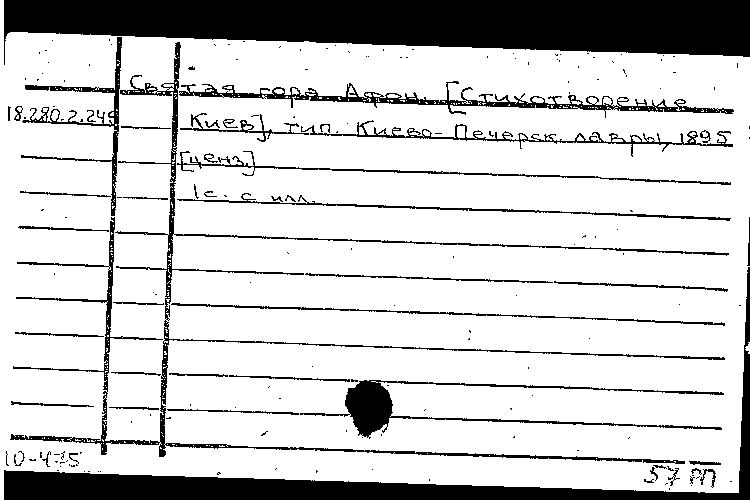 Святая гора Афон. [Стихотворение
18.280.2.249 Киев], тип. Киево-Печерск. лавры, 1895
[ценз.]
1 с. с илл.
10-475
57 РП